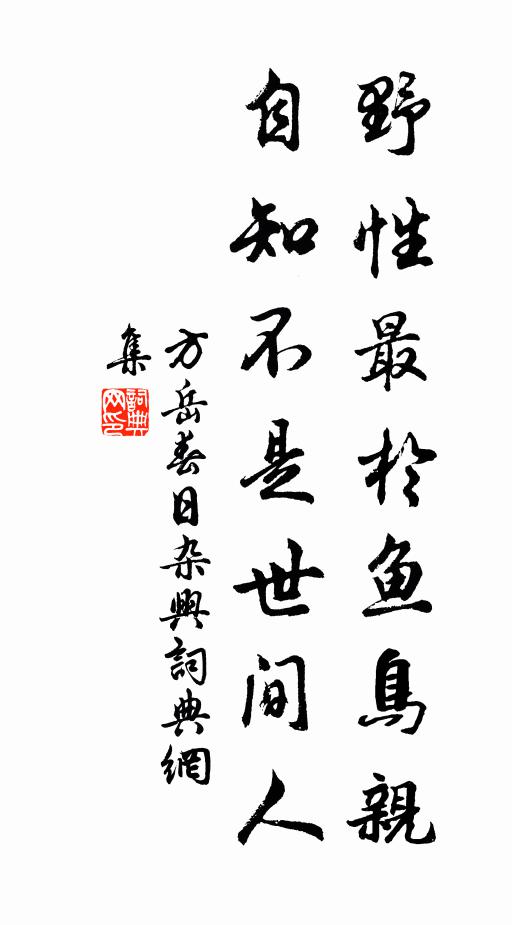 野性最於鱼鳥親
自知不是世间人
方岳春日杂興詞典網
集
詞典
网印